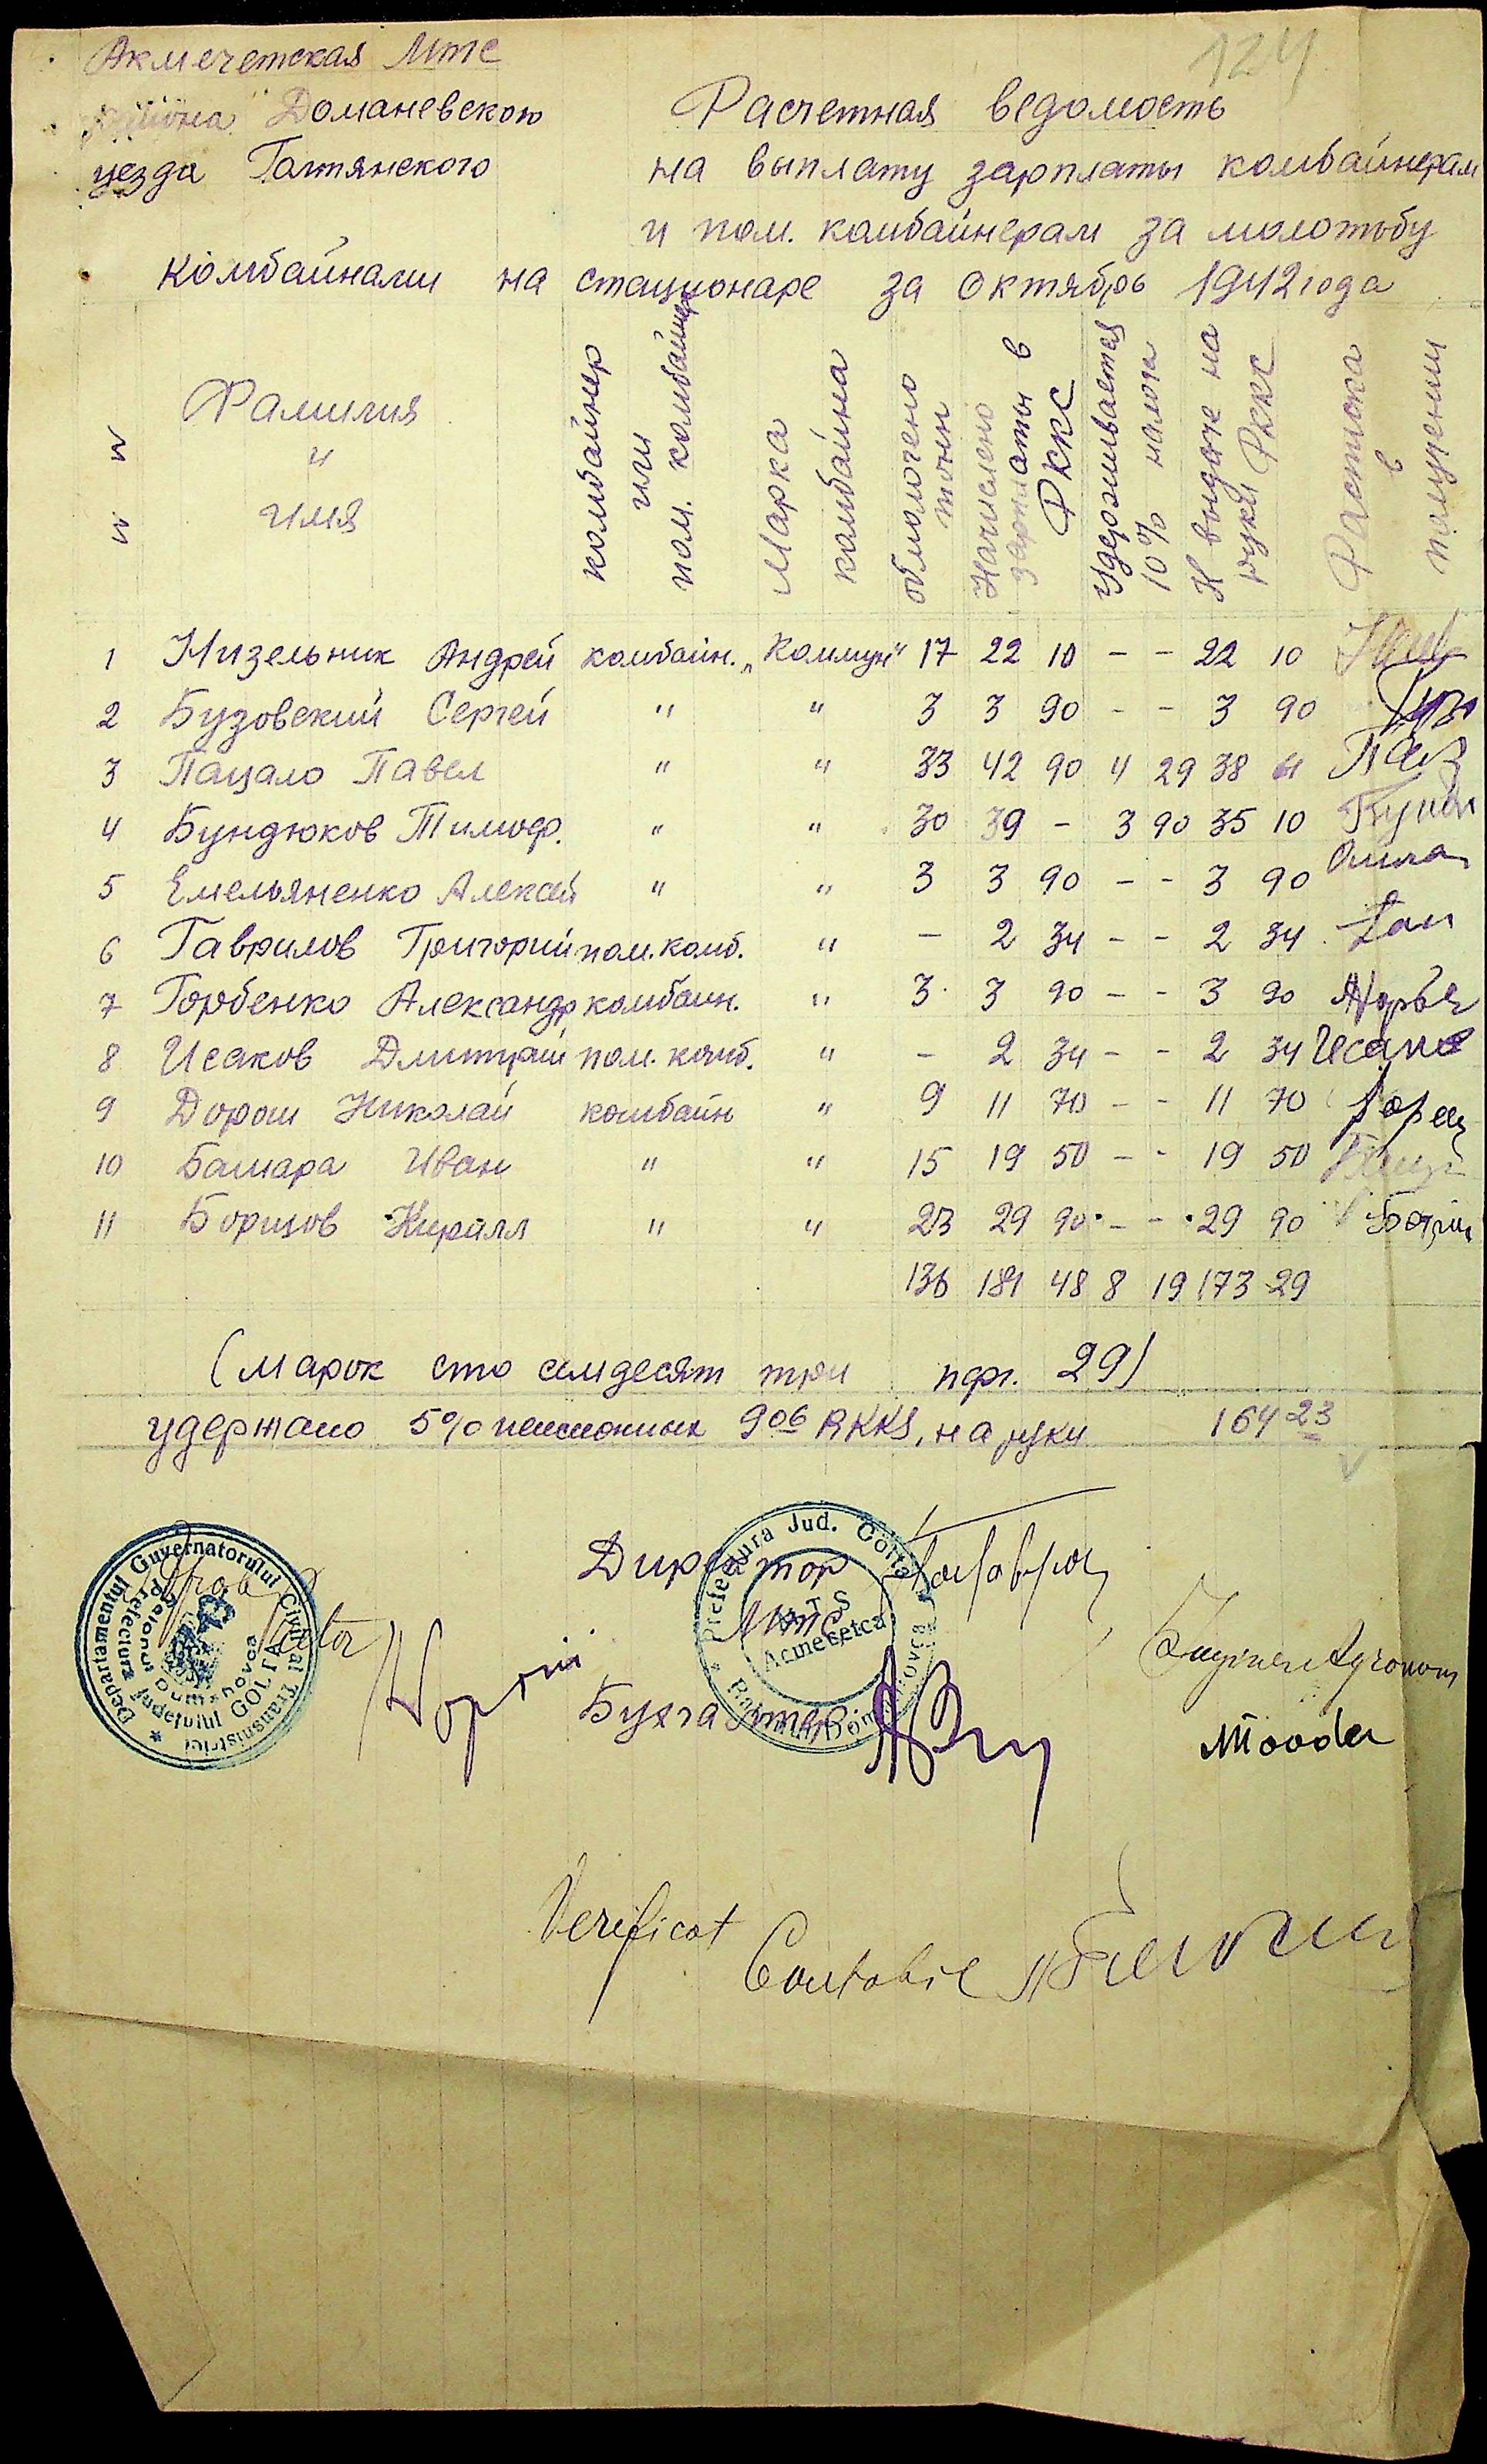 124
Акмечетская Мтс
района Доманевского
уезда Голтянского
Расчетная ведомость
на выплату зарплаты комбайнерам
и пом. комбайнерам за молотьбу
комбайнами на стационаре за октябрь 1942 года
Фамилия и имя
комбайнер или пом. комбайнер
Марка комбайна
обмолочено тонн
Начислено зарплаты в РККС
Удерживается 10% налога
К выдаче на руки РККС
Расписка в получении
1 Кизельник Андрей комбайн. „Коммун" 17 22 10 - - 22 10
2 Бузовский Сергей " " 3 3 90 - - 3 90
3 Пацало Павел " " 33 42 90 4 29 38 61
4 Бундюков Тимоф. " " 30 39 - 3 90 35 10
5 Емельяненко Алексей " " 3 3 90 - - 3 90
6 Гаврилов Григорий пом. комб. " - 2 34 - - 2 34
7 Горбенко Александр комбайн. " 3 3 90 - - 3 90
8 Исаков Дмитрий пом. комб. " - 2 34 - - 2 34
9 Дорош Николай комбайн " 9 11 70 - - 11 70
10 Башара Иван " " 15 19 50 - - 19 50
11 Борцов Кирилл " " 23 29 90 - - 29 90
136 181 48 8 19 173 29
(марок сто семдесят три пфг. 29)
удержано 5% пенсионных 9 06 RKKS, на руки 164 23
Departamentul Guvernatorului Civil al Transnistriei
Prefectura Judeţului GOLTA
Raionul Dumanovca
Директор
Мтс
Prefectura Jud. Golta
MTS
Acmecetca
Бухгалтер
Inginer Agronom
Verificat
Contabil